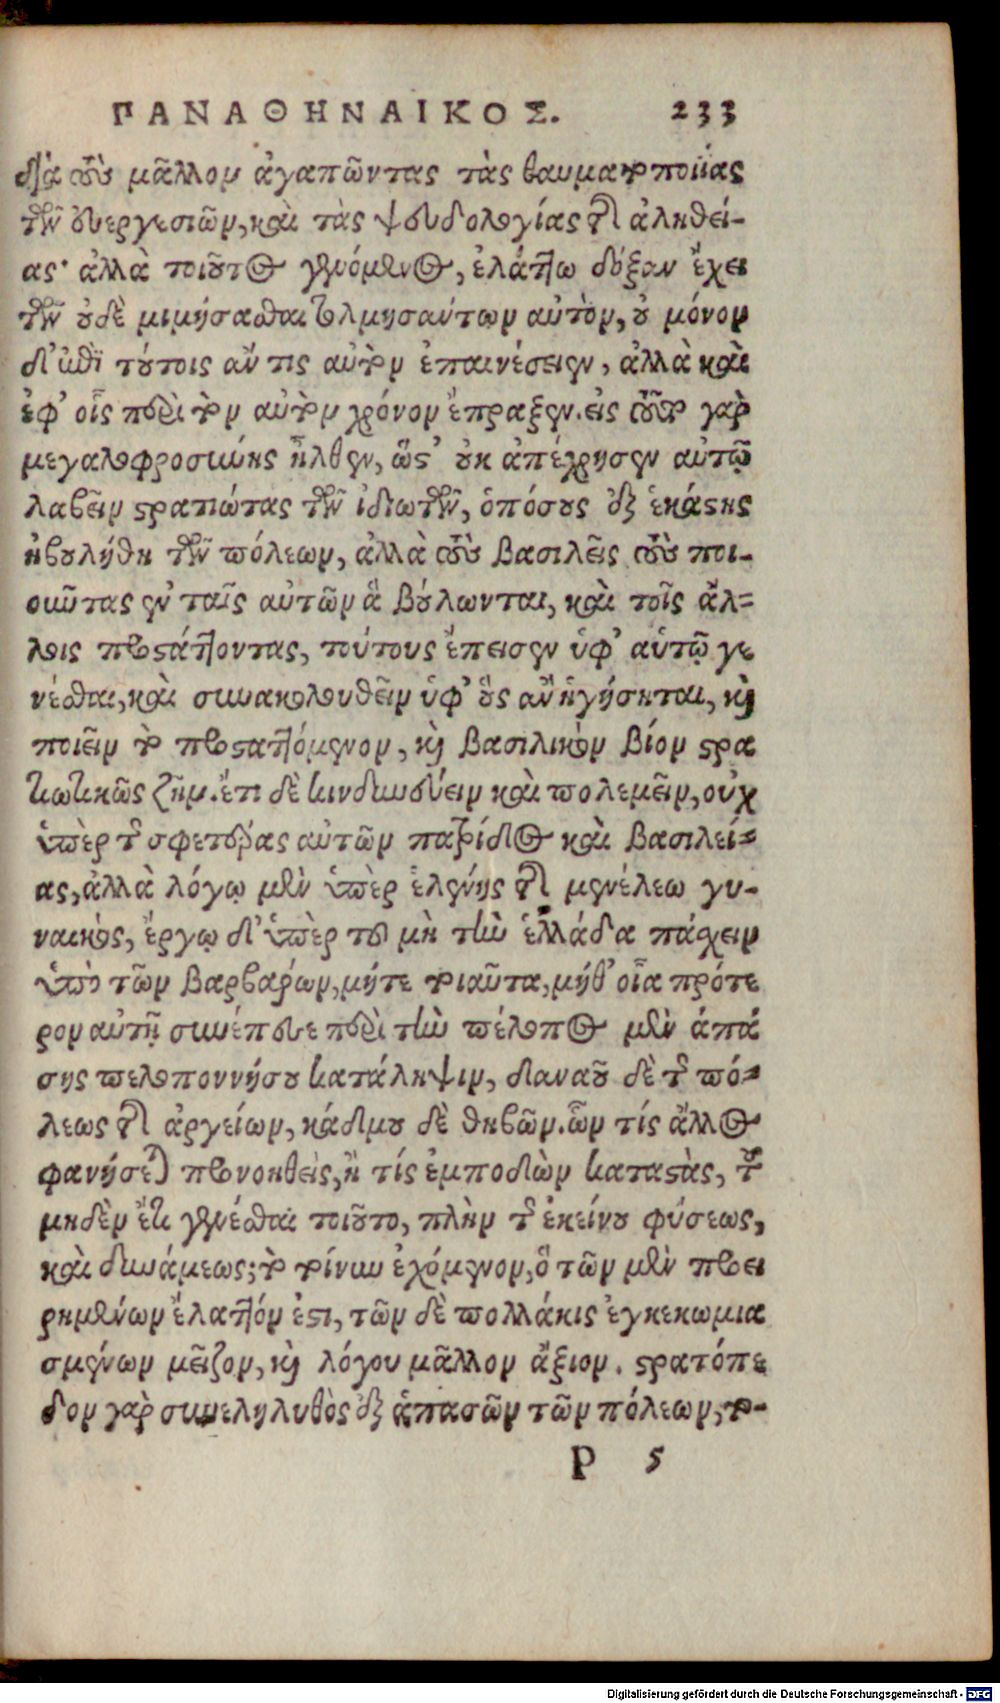 ΠΑΝΑΘΗΝΑΙΚΟΣ. 233
διὰ τοὺς μᾶλλον ἀγαπῶντας τὰς θαυματοποιίας
τῶν εὐεργεσιῶν, καὶ τὰς ψευδολογίας τῆς ἀληθεί-
ας· ἀλλὰ τοιοῦτος γενόμενος, ἐλάττω δόξαν ἔχει
τῶν οὐδὲ μιμήσασθαι τολμησάντων αὐτὸν, οὐ μόνον
δ' ἐπὶ τούτοις ἄν τις αὐτὸν ἐπαινέσειεν, ἀλλὰ καὶ
ἐφ' οἷς περὶ τὸν αὐτὸν χρόνον ἔπραξεν. εἰς τοῦτο γὰρ
μεγαλοφροσύνης ἦλθεν, ὥστ' οὐκ ἀπέχρησεν αὐτῷ
λαβεῖν στρατιώτας τῶν ἰδιωτῶν, ὁπόσους ἐξ ἑκάστης
ἠβουλήθη τῶν πόλεων, ἀλλὰ τοὺς βασιλεῖς τοὺς ποι-
οῦντας ἐν ταῖς αὐτῶν ἃ βούλωνται, καὶ τοῖς ἄλ-
λοις προστάττοντας, τούτους ἔπεισεν ὑφ' αὑτῷ γε
νέσθαι, καὶ συνακολουθεῖν ὑφ' οὓς ἂν ἡγήσηται, καὶ
ποιεῖν τὸ προσταττόμενον, καὶ βασιλικὸν βίον στρα
τιωτικῶς ζῆν. ἔτι δὲ κινδυνεύειν καὶ πολεμεῖν, οὐχ
ὑπὲρ τῆς σφετέρας αὐτῶν πατρίδος καὶ βασιλεί-
ας, ἀλλὰ λόγῳ μὲν ὑπὲρ ἑλένης τῆς μενέλεω γυ-
ναικὸς, ἔργῳ δ' ὑπὲρ τοῦ μὴ τὴν ἑλλάδα πάσχειν
ὑπὸ τῶν βαρβάρων, μήτε τοιαῦτα, μήθ' οἷα πρότε
ρον αὐτῇ συνέπεσε περὶ τὴν πέλοπος μὲν ἁπά
σης πελοποννήσου κατάληψιν, δαναοῦ δὲ τῆς πό-
λεως τῆς ἀργείων, κάδμου δὲ θηβῶν. ὧν τίς ἄλλος
φανήσεται προνοηθεὶς, ἢ τίς ἐμποδὼν καταστὰς, τοῦ
μηδὲν ἔτι γενέσθαι τοιοῦτο, πλὴν τῆς ἐκείνου φύσεως,
καὶ δυνάμεως; τὸ τοίνυν ἐχόμενον, ὃ τῶν μὲν προει
ρημένων ἔλαττόν ἐστι, τῶν δὲ πολλάκις ἐγκεκωμια
σμένων μεῖζον, καὶ λόγου μᾶλλον ἄξιον. στρατόπε
δον γὰρ συνεληλυθὸς ἐξ ἁπασῶν τῶν πόλεων, το-
P 5
Digitalisierung gefördert durch die Deutsche Forschungsgemeinschaft - DFG